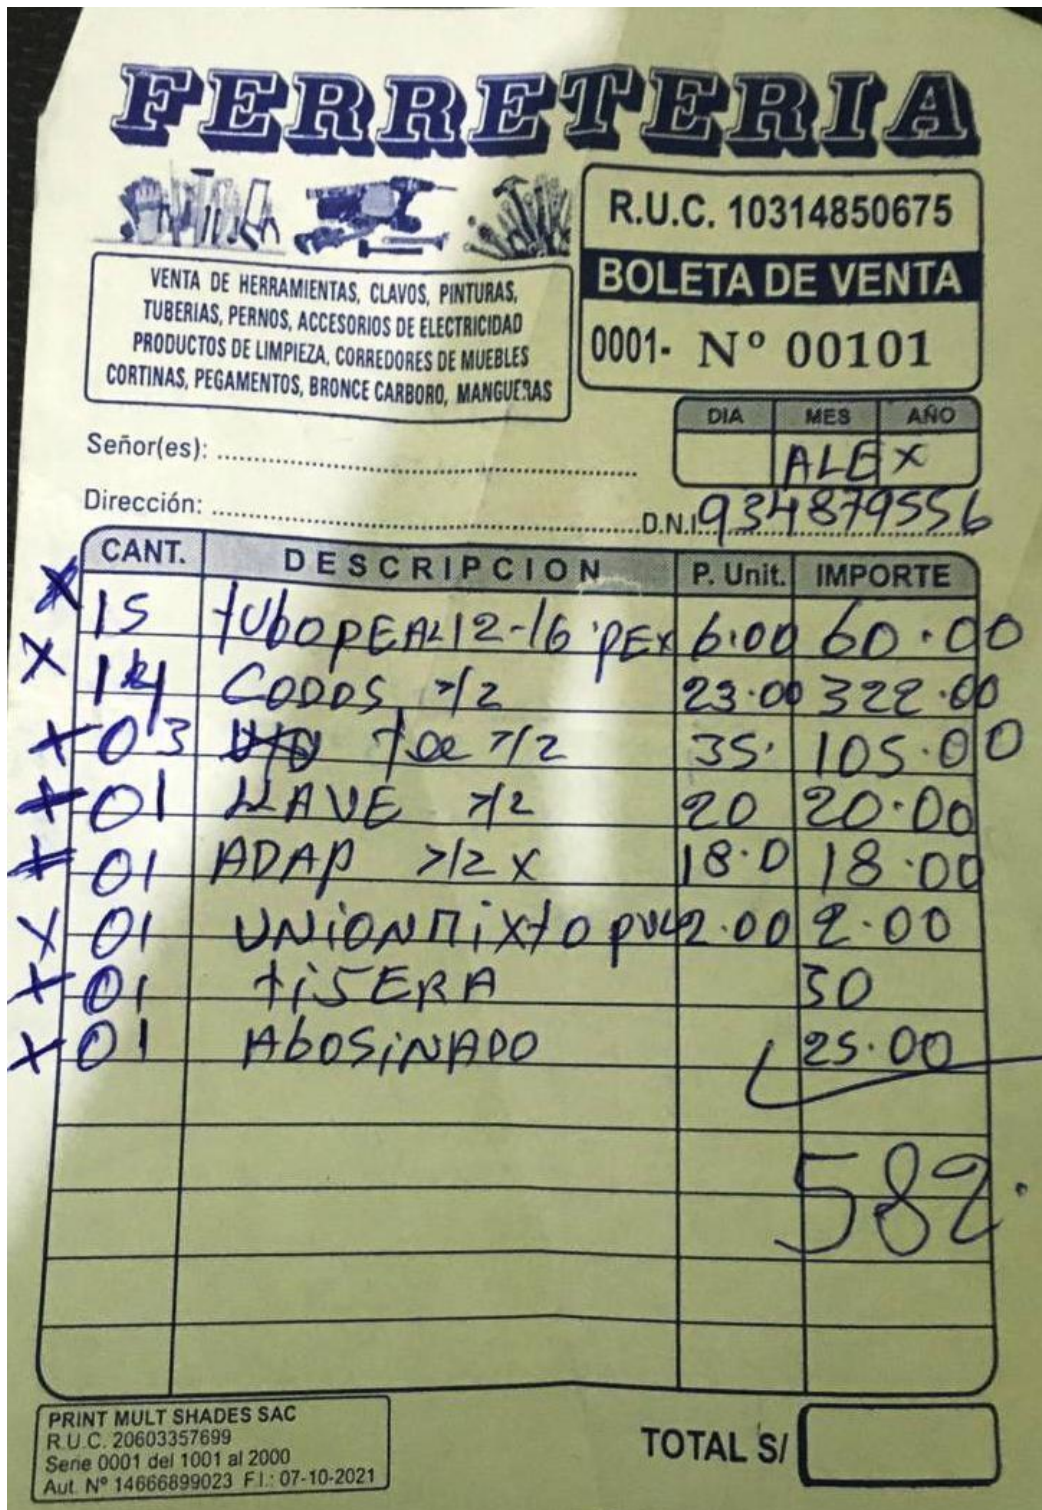 FERRETERIA
VENTA DE HERRAMIENTAS, CLAVOS, PINTURAS,
TUBERIAS, PERNOS, ACCESORIOS DE ELECTRICIDAD
PRODUCTOS DE LIMPIEZA, CORREDORES DE MUEBLES
CORTINAS, PEGAMENTOS, BRONCE CARBORO, MANGUERAS
R.U.C. 10314850675
BOLETA DE VENTA
0001- Nº 00101
DIA MES AÑO
ALEX
Señor(es):
Dirección:
D.N.I. 934879556
CANT. DESCRIPCION P. Unit. IMPORTE
X 15 tubo PEAL 12-16 PEX 6.00 60.00
X 14 CODOS 7/2 23.00 322.00
X 03 Tee 7/2 35. 105.00
X 01 LLAVE 7/2 20 20.00
X 01 ADAP 7/2 X 18.0 18.00
X 01 UNiON MiXtO PVC 2.00 2.00
X 01 tiSERA 30
X 01 AbOSiNADO 25.00
582.
PRINT MULT SHADES SAC
R.U.C. 20603357699
Serie 0001 del 1001 al 2000
Aut. Nº 14666899023 F.I.: 07-10-2021
TOTAL S/